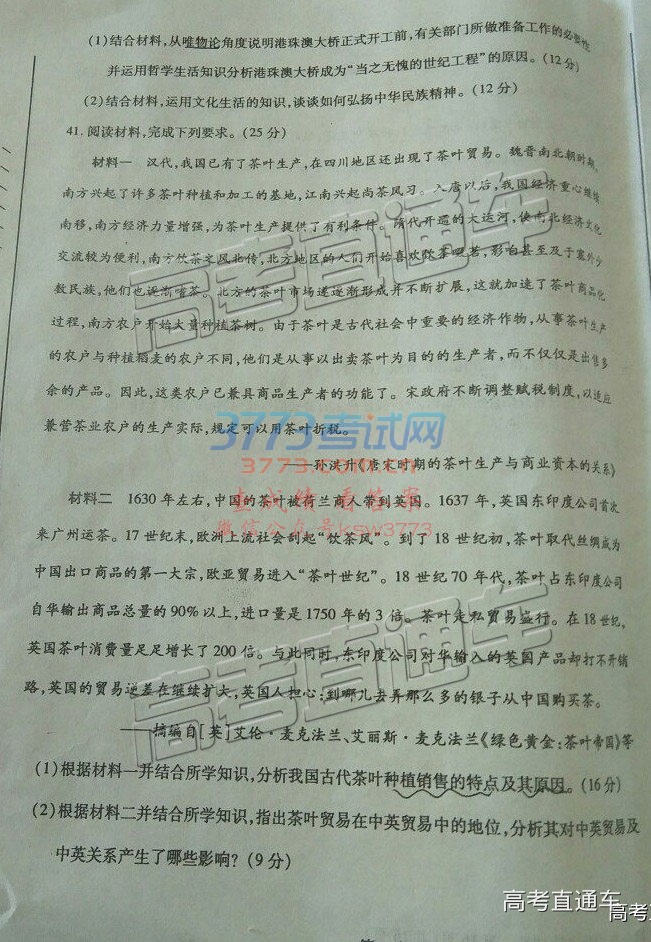 (1)结合材料,从唯物论角度说明港珠澳大桥正式开工前,有关部门所做准备工作的必要性
并运用哲学生活知识分析港珠澳大桥成为“当之无愧的世纪工程”的原因。(12分)
(2)结合材料,运用文化生活的知识,谈谈如何弘扬中华民族精神。(12分)
41.阅读材料,完成下列要求。(25分)
材料一 汉代,我国已有了茶叶生产,在四川地区还出现了茶叶贸易。魏晋南北朝时期,
南方兴起了许多茶叶种植和加工的基地,江南兴起尚茶风习。入唐以后,我国经济重心继续
南移,南方经济力量增强,为茶叶生产提供了有利条件。隋代开通的大运河,使南北经济文化
交流较为便利,南方饮茶文风北传,北方地区的人们开始喜欢饮茶啜茗,影响甚至及于塞外少
数民族,他们也逐渐嗜茶。北方的茶叶市场遂逐渐形成并不断扩展,这就加速了茶叶商品化
过程,南方农户开始大量种植茶树。由于茶叶是古代社会中重要的经济作物,从事茶叶生产
的农户与种植稻麦的农户不同,他们是从事以出卖茶叶为目的的生产者,而不仅仅是出售多
余的产品。因此,这类农户已兼具商品生产者的功能了。宋政府不断调整赋税制度,以适应
兼营茶业农户的生产实际,规定可以用茶叶折税。
——孙洪升《唐宋时期的茶叶生产与商业资本的关系》
材料二 1630年左右,中国的茶叶被荷兰商人带到英国。1637年,英国东印度公司首次
来广州运茶。17世纪末,欧洲上流社会刮起“饮茶风”。到了18世纪初,茶叶取代丝绸成为
中国出口商品的第一大宗,欧亚贸易进入“茶叶世纪”。18世纪70年代,茶叶占东印度公司
自华输出商品总量的90%以上,进口量是1750年的3倍。茶叶走私贸易盛行。在18世纪,
英国茶叶消费量足足增长了200倍。与此同时,东印度公司对华输入的英国产品却打不开销
路,英国的贸易逆差在继续扩大,英国人担心:到哪儿去弄那么多的银子从中国购买茶。
——摘编自[英]艾伦·麦克法兰、艾丽斯·麦克法兰《绿色黄金:茶叶帝国》等
(1)根据材料一并结合所学知识,分析我国古代茶叶种植销售的特点及其原因。(16分)
(2)根据材料二并结合所学知识,指出茶叶贸易在中英贸易中的地位,分析其对中英贸易及
中英关系产生了哪些影响?(9分)
高考直通车
3773考试网
3773.com.cn
查成绩 看答案
微信公众号ksw3773
高考直通车
高考直通车
高考